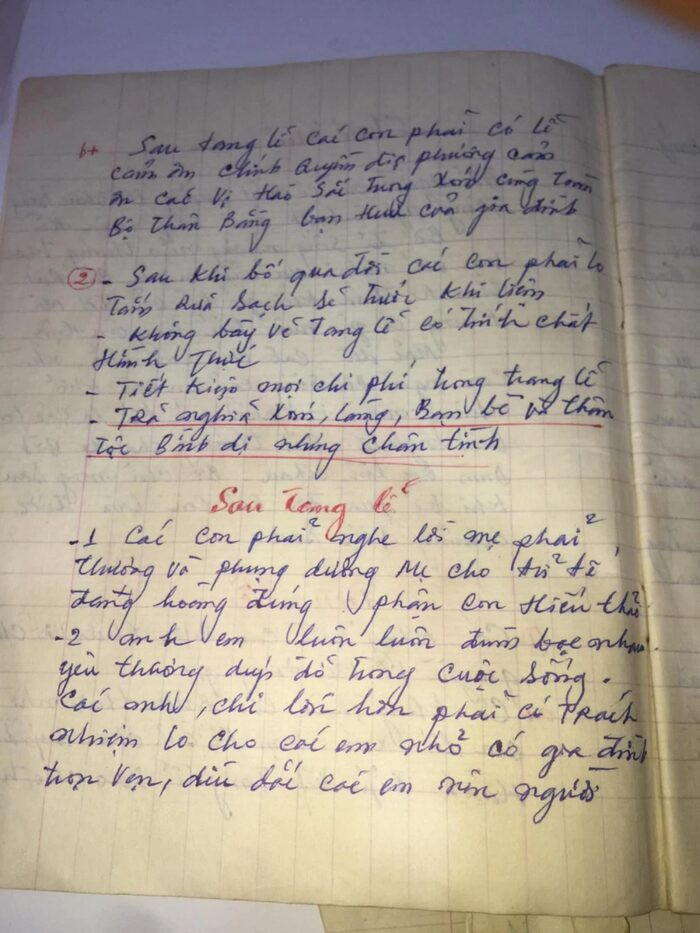 6+ Sau tang lễ các con phải có lễ
cảm ơn chính quyền địa phương cảm
ơn các vị Hảo Sắc trong xóm cùng toàn
Bộ Thân Bằng bạn Hữu của gia đình
2 - Sau khi bố qua đời các con phải lo
Tắm Rửa Sạch Sẽ trước khi liệm
- không bầy vẽ Tang lễ có tính chất
Hình Thức
- Tiết Kiệm mọi chi phí trong trang lễ
- Trả nghĩa xóm, làng, Bạn bè và thân
tộc Bình dị nhưng chân tình
Sau Tang lễ
-1 Các con phải nghe lời mẹ phải
thương và phụng dưỡng Mẹ cho tử tế
đàng hoàng đúng phận con Hiếu thảo
-2 anh em luôn luôn đùm bọc nhau
yêu thương dúp đỡ trong cuộc sống.
các anh, chị lớn hơn phải có trách
nhiệm lo cho các em nhỏ có gia đình
trọn vẹn, dìu dắt các em nên người